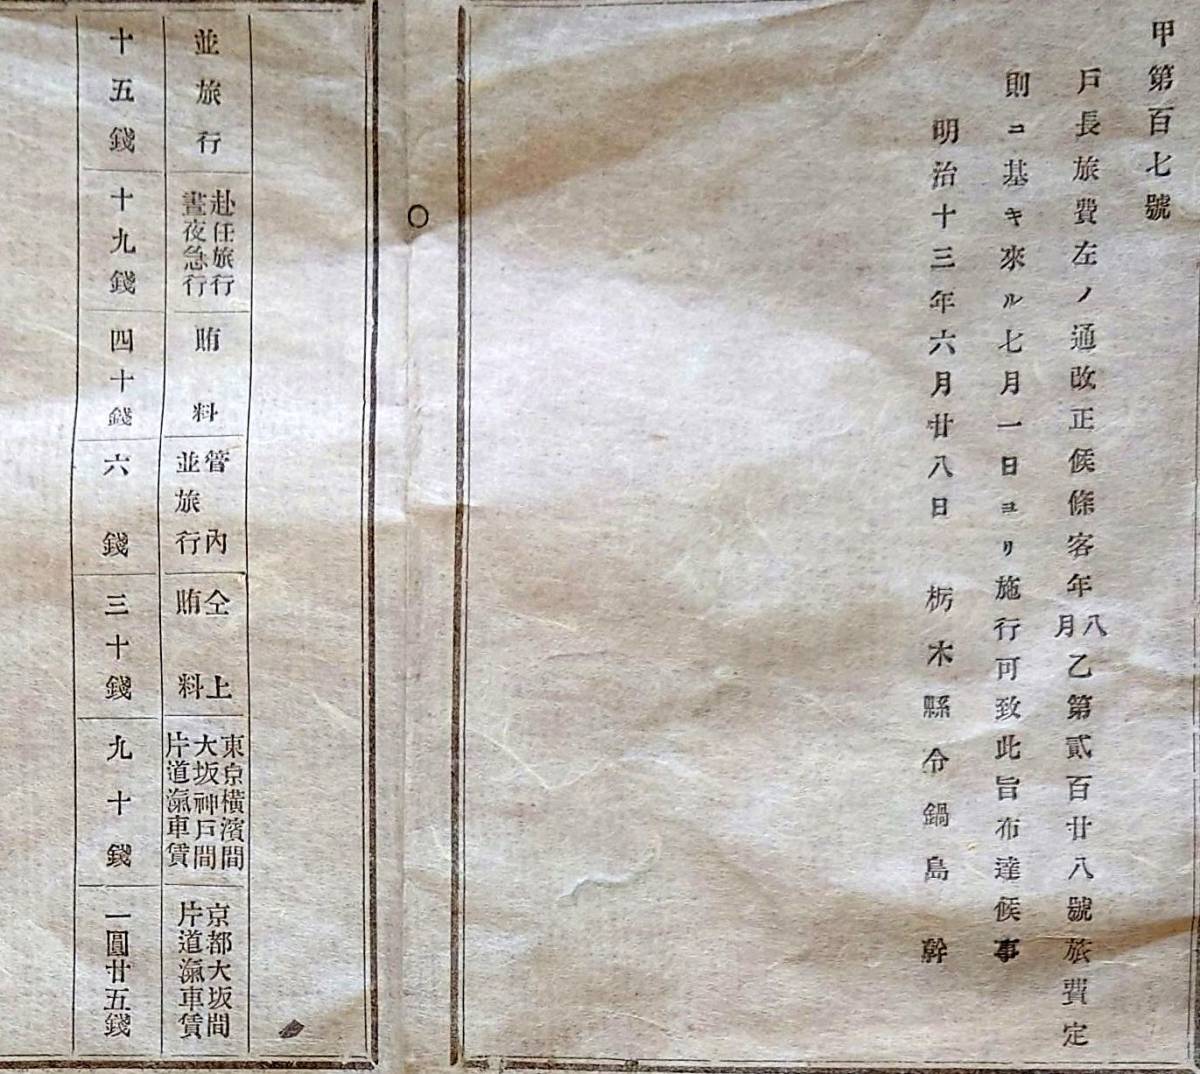 甲第百七號
戸長旅費左ノ通改正候條客年八月乙第貳百廿八號旅費定
則ニ基キ來ル七月一日ヨリ施行可致此旨布達候事
明治十三年六月廿八日 栃木縣令鍋島幹
並旅行
赴任旅行
晝夜急行
賄料
管內
並旅行
仝上
賄料
東京橫濱間
大坂神戸間
片道滊車賃
京都大坂間
片道滊車賃
十五錢
十九錢
四十錢
六錢
三十錢
九十錢
一圓廿五錢